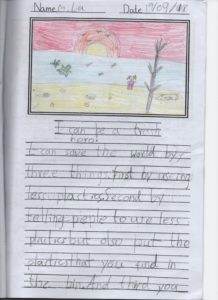 Name M. La Date 19/09/18
I can be a
hero!
I can save the world by,
three things first by useing
less plastics, second by
telling peple to use less
plastics but also put the
plastics that you find in
the bin. And third you